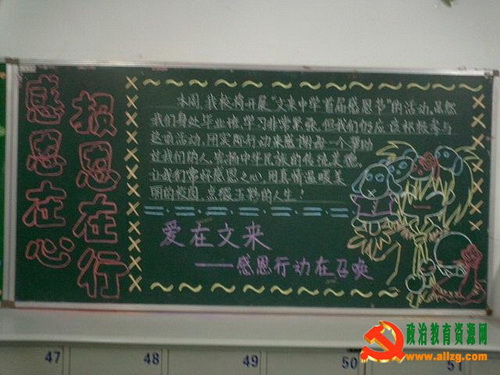 感恩在心
报恩在行
本周,我校将开展“文来中学首届感恩节”的活动,虽然
我们身处毕业班,学习非常紧张,但我们仍应该积极参与
这项活动,用实际行动来感谢每一个帮助
过我们的人,弘扬中华民族的传统美德。
让我们常怀感恩之心,用真情温暖美
丽的校园,点缀五彩的人生!
爱在文来
——感恩行动在召唤
47 48 49 50 51
政治教育资源网
www.allzg.com